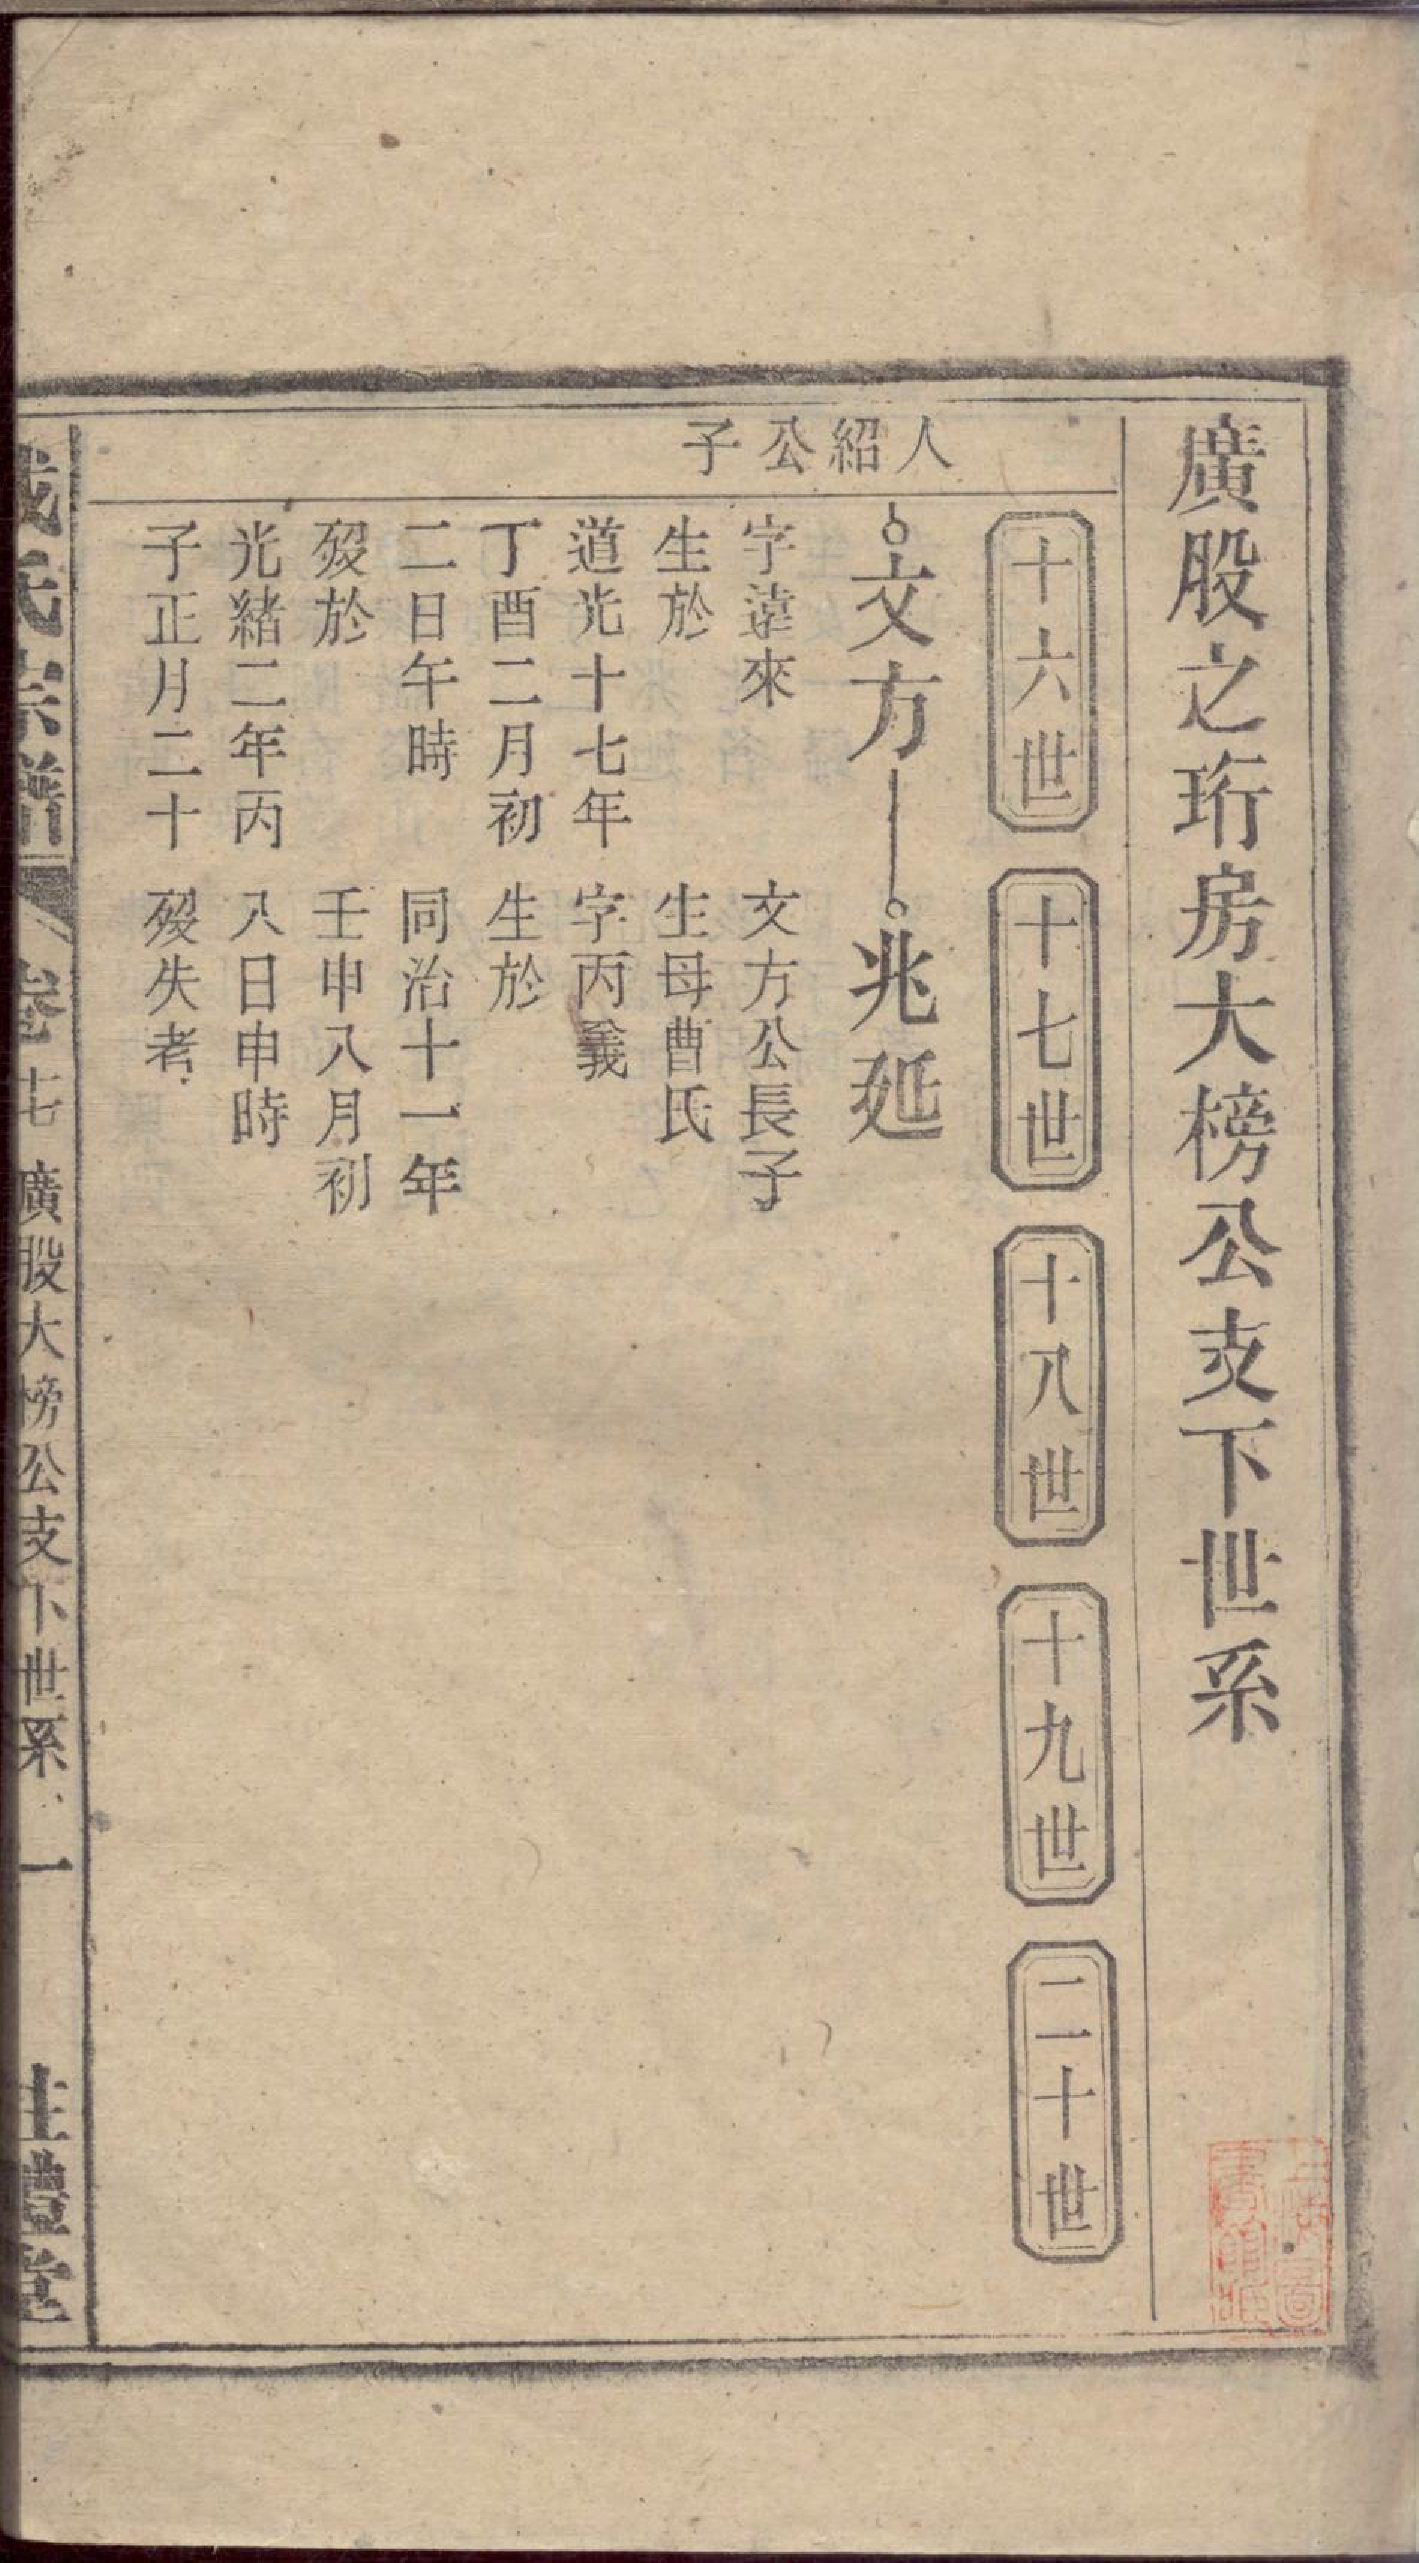 廣股之珩房大榜公支下世系
十六世
十七世
十八世
十九世
二十世
人紹公子
文方
兆延
字遠來
生於
道光十七年
丁酉二月初
二日午時
歿於
光緒二年丙
子正月二十
文方公長子
生母曹氏
字丙義
生於
同治十一年
壬申八月初
八日申時
歿失考
氏宗譜
卷七
廣股大榜公支下世系
一
禮堂